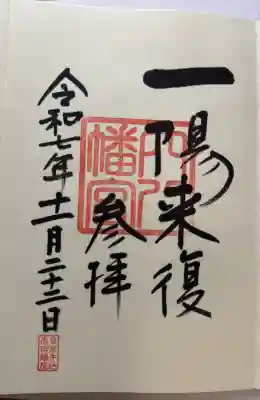 一陽来復
穴八
幡宮
参拝
令和七年十二月二十二日